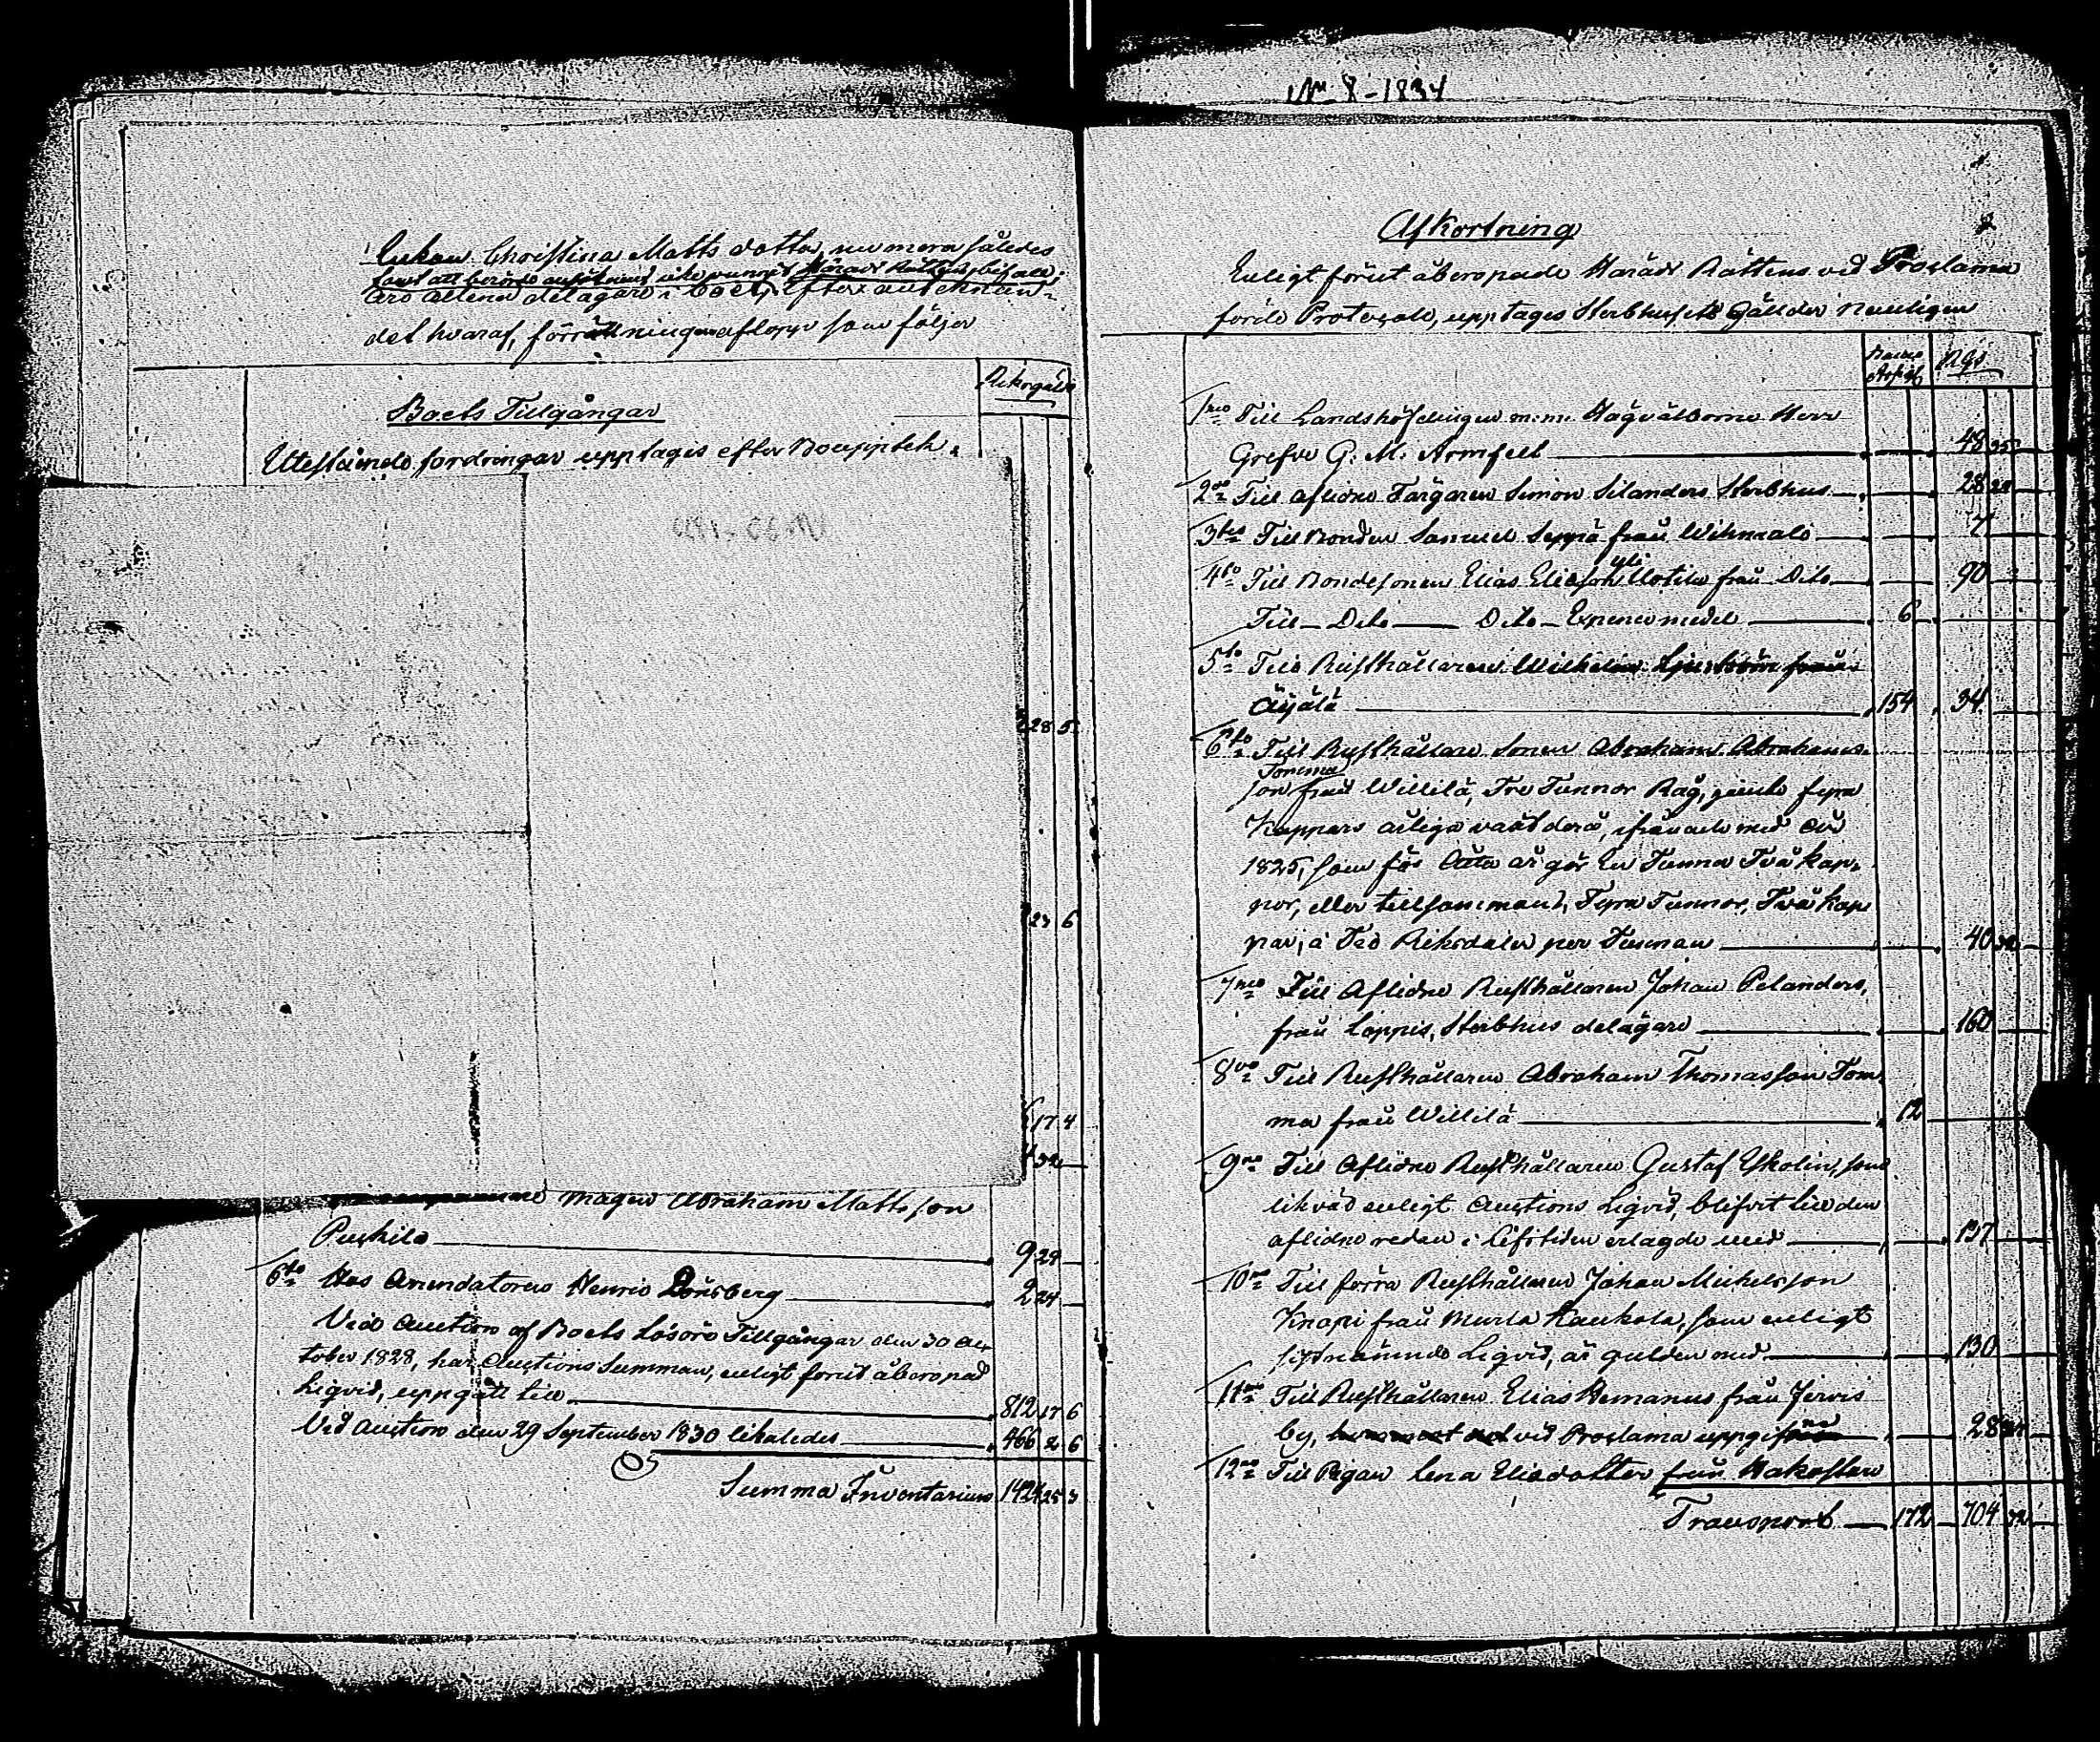 Enkan Christina Matts dotter, nu mera således
samt att berörde ansökning icke vunnit Härads Rättens bifall;
äro allena delägare i boet. Efter antecknan-
det hvaraf, förrättningen aflopp som följer
Riksgäld
Boets Tillgångar
Utestående fordringar upptages efter Boupptekn.
28 5
23 6
17 4
32
Magen Abraham Mattsson
Puckila 9 24
6to Hos Arrendatoren Henric Lönsberg 2 24
Vid Auction af Boets Lösöre Tillgångar den 30 Oc-
tober 1828, har Auctions Summan, enligt förut åberopad
Liqvid, uppgått till 812 17 6
Vid Auction den 29 September 1830 likaledes 466 2 6
Summa Inventarium 1424 25 3
No 8 - 1834
Afkortning
Enligt förut åberopade Härads Rättens vid Proclama
förde Protocoll, upptages Sterbhusets Gälder nemligen
Banco Assigt Rgs
1mo Till Landshöfdingen m:m: Högvälborne Herr
Grefve G. M. Armfelt 48 35
2do Till aflidne Färgaren Simon Silanders Sterbhus 28 24
3tio Till Bonden Samuel Seppä från Wihmalo 7
yli
4to Till Bondesonen Elias Eliasson Uotila från Dito 90
Till Dito Dito Expencemedel 6
5to Till Rusthållaren Wilhelm Ljuström från
Äyälä 154 34
6to Till Rusthållare Sonen Abraham Abrahams-
Tomma
son från Willilä, Tre Tunnor Råg, jemte fyra
Kappars årliga växt derå, ifrån och med år
1825, som för Åtta år gör En Tunna Två kap-
por, eller tillsamman, Fyra Tunnor, Två kap
par, à Tio Riksdaler per Tunnan 40 32
7mo Till Aflidne Rusthållaren Johan Pelanders,
från Loppis, Sterbhus delägare 160
8vo Till Rusthållaren Abraham Thomasson Tom-
ma från Willilä 12
9no Till Aflidne Rusthållaren Gustaf Yskolin, som
likväl enligt Auctions Liqvid, blifvit till den
aflidne redan i lifstiden erlagde med 137
10mo Till förra Rusthållaren Johan Michelsson
Knapi från Murla Kaukola, som enligt
sistnämnde Liqvid, är gulden med 130
11mo Till Rusthållaren Elias Hemanus från Jervis
by, vid Proclama uppgifne 28
12mo Till Pigan Lena Eliedotter från Hakosten
Transport 172 704 32